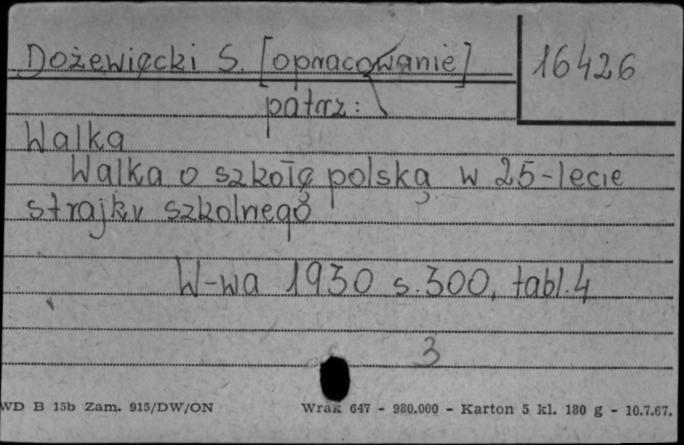 Dożewięcki S. [opracowanie]
16426
patrz:
Walka
Walka o szkołę polską w 25-lecie
strajku szkolnego
W-wa 1930 s. 300, tabl. 4
3
WD B 15b Zam. 915/DW/ON
Wrak 647 - 980.000 - Karton 5 kl. 180 g - 10.7.67.